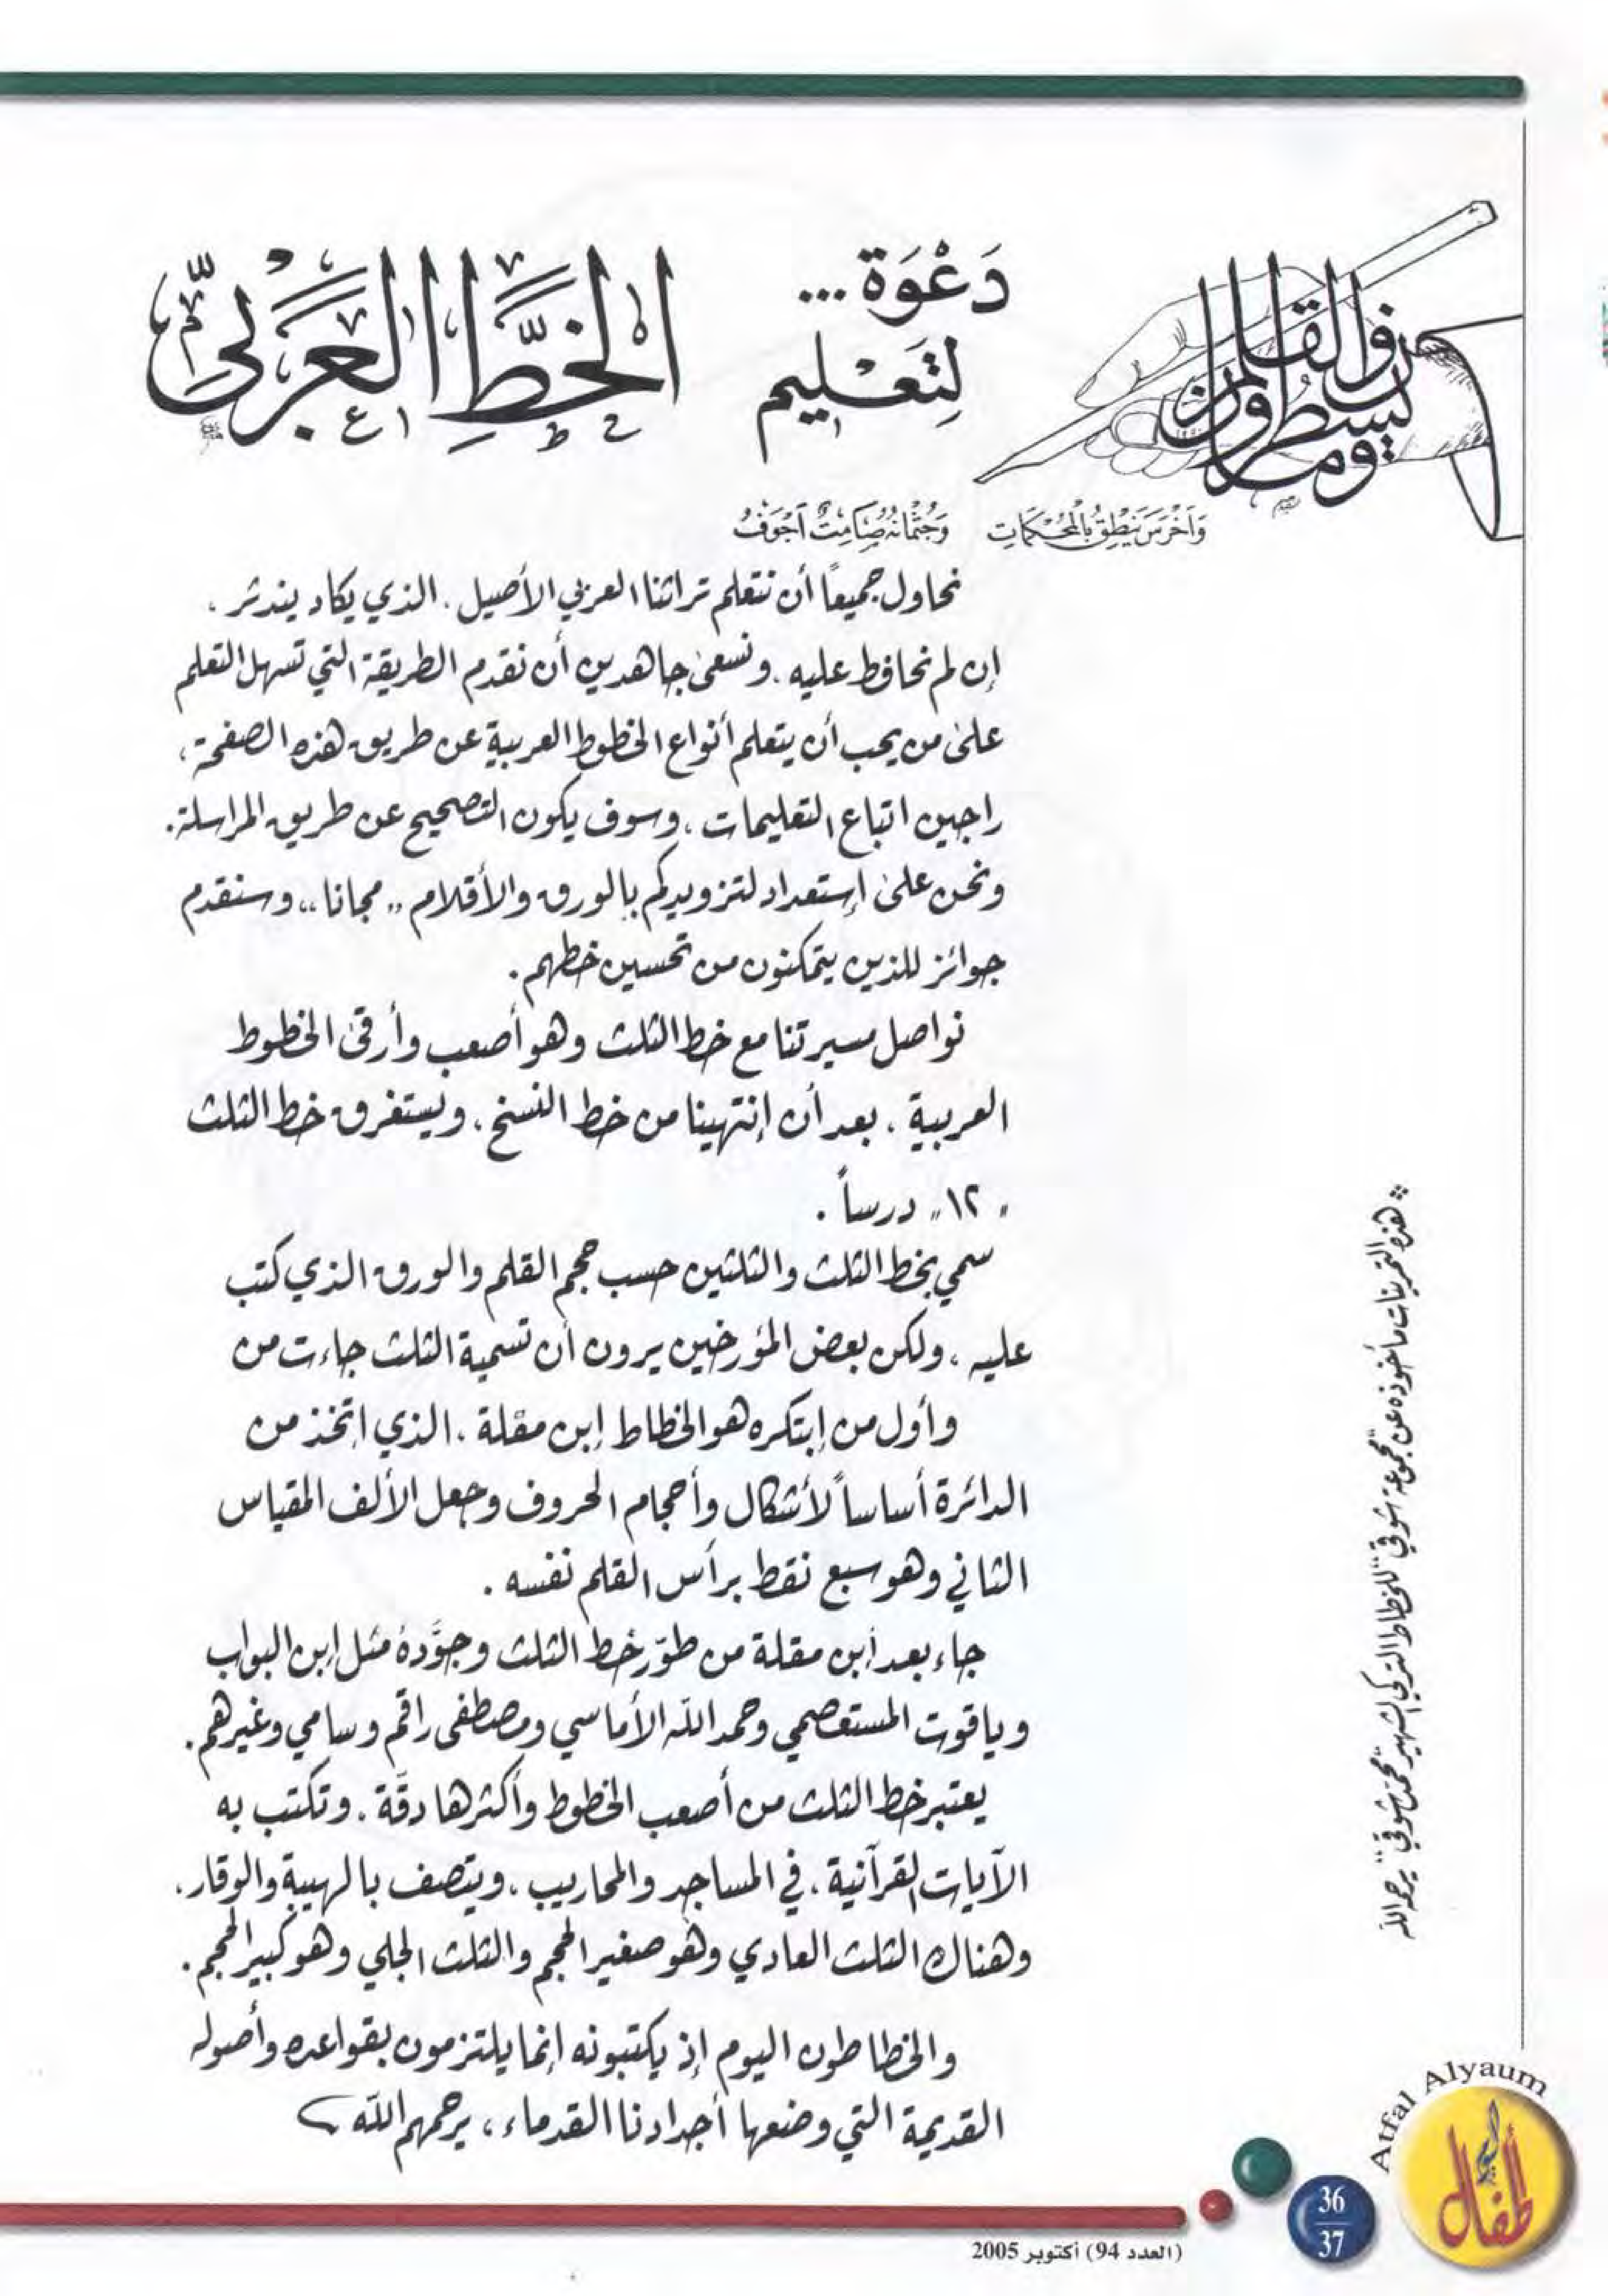 دَعْوَة...
لِتَعْليم
الخَطِّ العَرَبيّ
ن والقلم
وما يسطرون
وَأَخْرَسَ يَنْطِقُ بِالْمُحْكَمَاتِ وَجُثْمَانُهُ صَامِتٌ أَجْوَفُ
نحاول جميعاً أن نتعلم تراثنا العربي الأصيل، الذي يكاد يندثر،
إن لم نحافظ عليه، ونسعى جاهدين أن نقدم الطريقة التي تسهل التعلم
على من يحب أن يتعلم أنواع الخطوط العربية عن طريق هذه الصفحة،
راجين اتباع التعليمات، وسوف يكون التصحيح عن طريق المراسلة.
ونحن على إستعداد لتزويدكم بالورق والأقلام „مجانا„ وسنقدم
جوائز للذين يتمكنون من تحسين خطهم.
نواصل مسيرتنا مع خط الثلث وهو أصعب وأرقى الخطوط
العربية، بعد أن إنتهينا من خط النسخ، ويستغرق خط الثلث
„١٢„ درساً.
سمي بخط الثلث والثلثين حسب حجم القلم والورق الذي كتب
عليه، ولكن بعض المؤرخين يرون أن تسمية الثلث جاءت من
وأول من إبتكره هو الخطاط إبن مقلة، الذي اتخذ من
الدائرة أساساً لأشكال وأحجام الحروف وجعل الألف المقياس
الثاني وهو سبع نقط برأس القلم نفسه.
جاء بعد أبن مقلة من طوّر خط الثلث وجوَّدهُ مثل إبن البواب
وياقوت المستعصمي وحمد الله الأماسي ومصطفى راقم وسامي وغيرهم.
يعتبر خط الثلث من أصعب الخطوط وأكثرها دقّة، وتكتب به
الآيات القرآنية، في المساجد والمحاريب، ويتصف بالهيبة والوقار،
وهناك الثلث العادي وهو صغير الحجم والثلث الجلي وهو كبير الحجم.
والخطاطون اليوم إذ يكتبونه إنما يلتزمون بقواعده وأصوله
القديمة التي وضعها أجدادنا القدماء، يرحمهم الله
* هذه التمرينات مأخوذه عن "مجموعة شوقي" للخطاط التركي الشهير "محمد شوقي" يرحمه الله
Atfal Alyaum
أطفال اليوم
36
37
(العدد 94) أكتوبر 2005